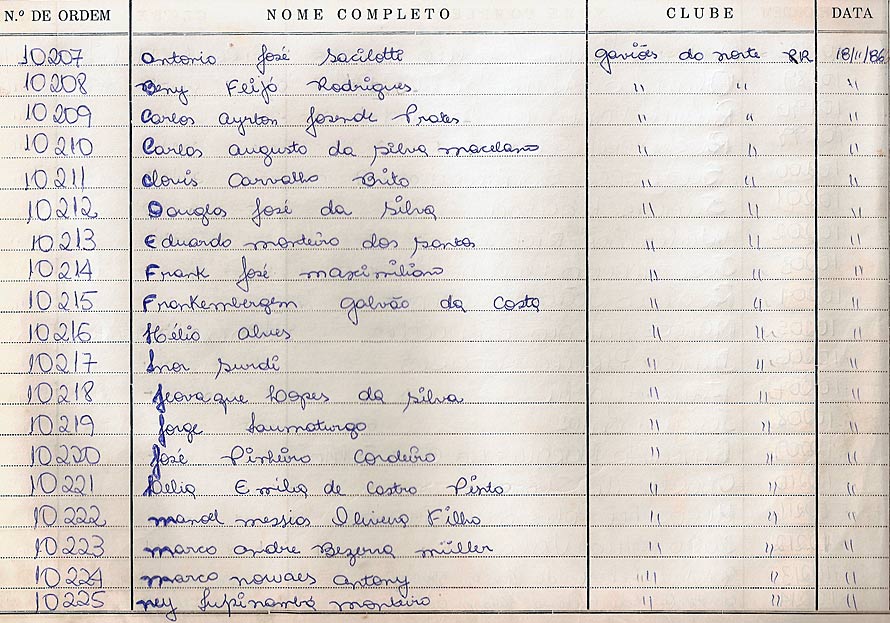 N.º DE ORDEM NOME COMPLETO CLUBE DATA
10207 Antonio José Sacilotti gaviões do norte RR 18/11/86
10208 Beny Feijó Rodrigues " " "
10209 Carlos Ayrton Josende Prates " " "
10210 Carlos Augusto da Silva Macelano " " "
10211 Clovis Carvalho Brito " " "
10212 Douglas José da Silva " " "
10213 Eduardo monteiro dos Santos " " "
10214 Frank José maximiliano " " "
10215 Frankembergem galvão da Costa " " "
10216 Hélio Alves " " "
10217 Inor Surdi " " "
10218 Jeovaque Lopes da Silva " " "
10219 Jorge Taumaturgo " " "
10220 José Pinheiro Cordeiro " " "
10221 Lelia Emilia de Castro Pinto " " "
10222 manoel messias Oliveira Filho " " "
10223 marco andre Bezerra müller " " "
10224 marco novaes Antony " " "
10225 ney Tupinambá monteiro " " "